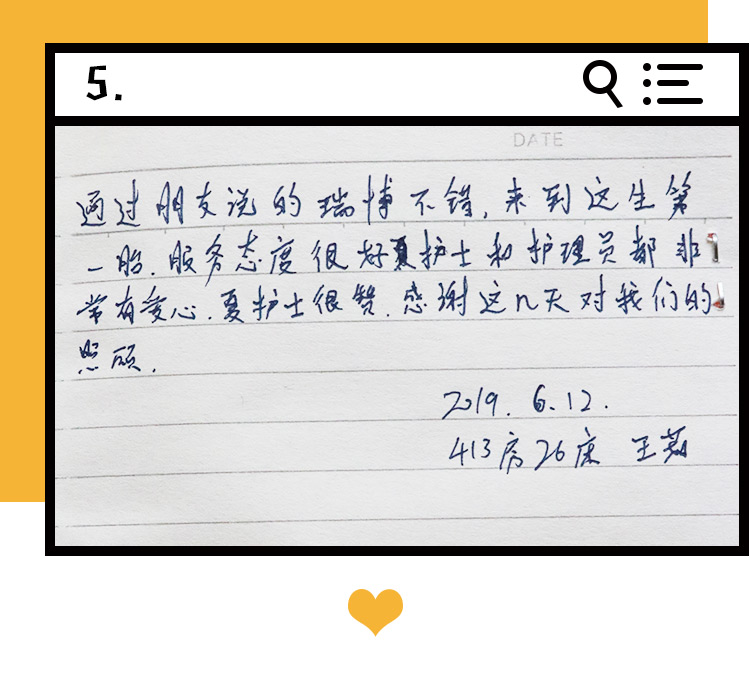 5.
DATE
通过朋友说的瑞博不错,来到这生第
一胎.服务态度很好夏护士和护理员都非
常有爱心.夏护士很赞.感谢这几天对我们的
照顾.
2019.6.12.
413房26床 王